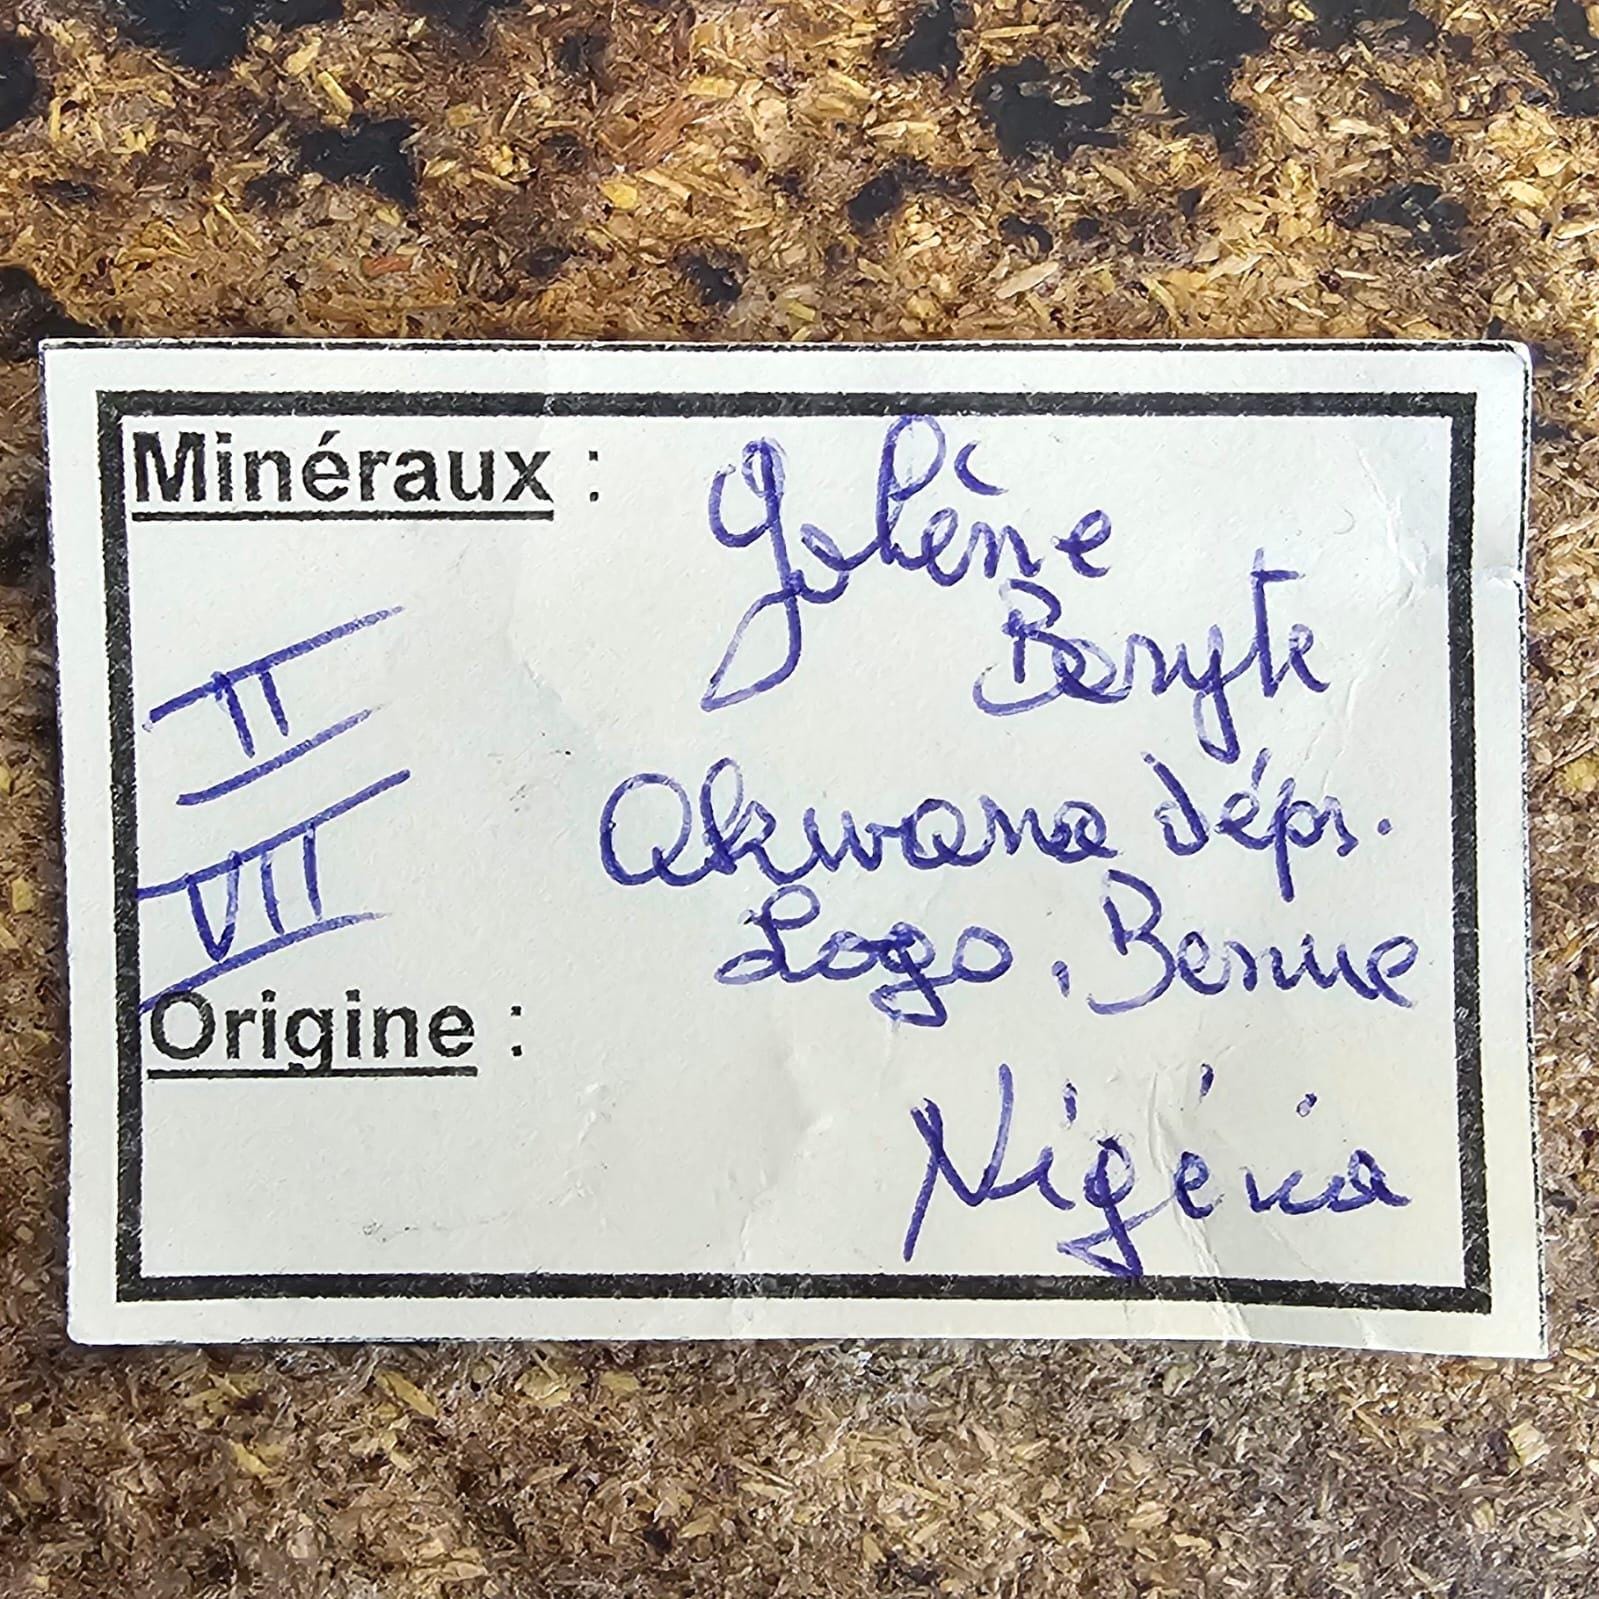 Minéraux :
Galène
Baryte
II
Akwana déps.
VII
Logo, Benue
Origine :
Nigéria